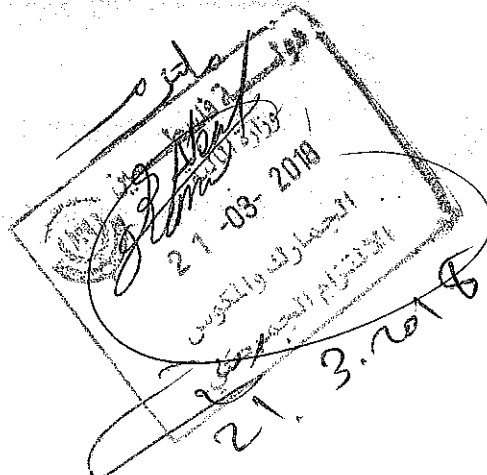 ملتزم
دولة فلسطين
وزارة
21 -03- 2018
الجمارك والمكوس
الالتزام الجمركي
21. 3. 2018